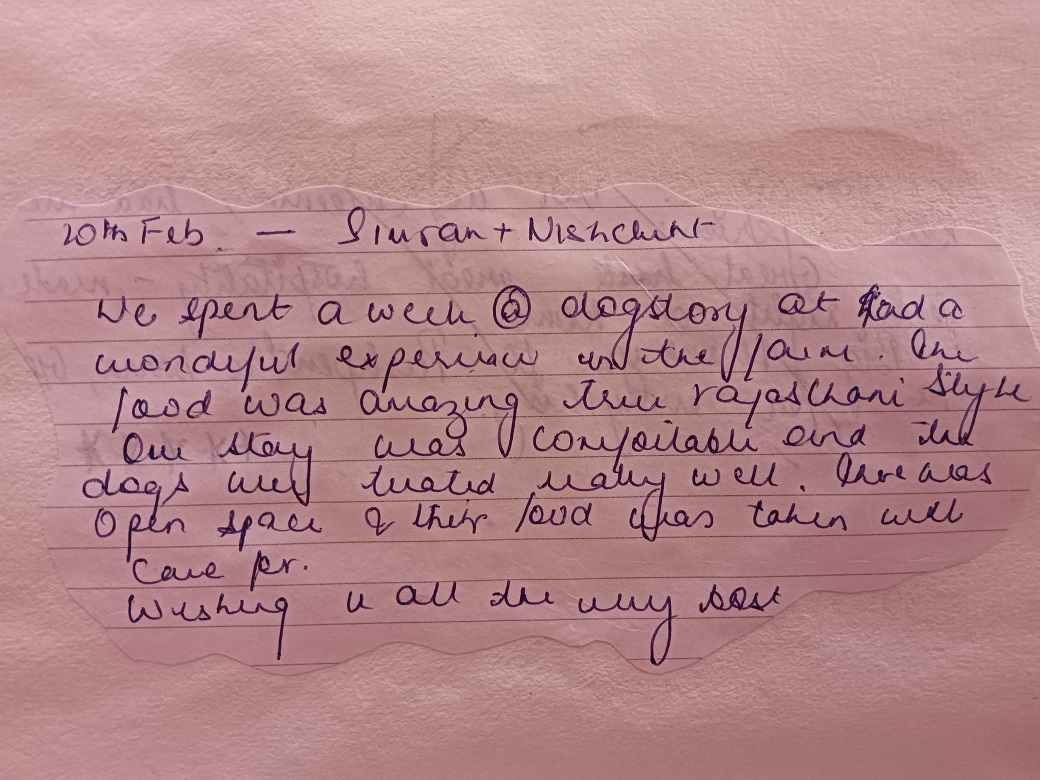 20th Feb. — Simran + Nishchint
We spent a week @ dogstory at had a
wonderful experience in the farm. The
food was amazing true rajasthani style
Our stay was comfortable and the
dogs were treated really well. There was
Open space & their food was taken well
Care for.
Wishing u all the very best